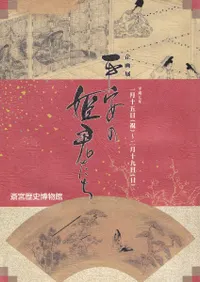 企画展
平安の
姫君たち
一月十五日(祝)〜二月十九日(日)
斎宮歴史博物館